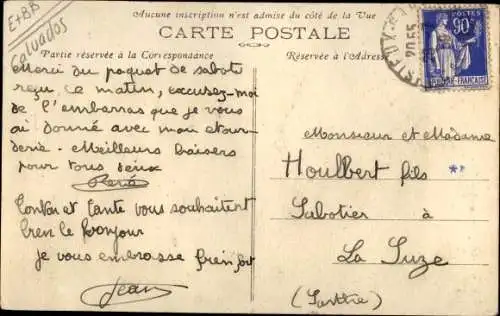 E+BB
Calvados
Aucune inscription n'est admise du côté de la Vue
CARTE POSTALE
Partie réservée à la Correspondance
Réservée à l'Adresse
POSTES
90c
Merci du paquet de sabots
reçu ce matin, excusez-moi
de l'embarras que je vous
ai donné avec mon étour-
derie. Meilleurs baisers
pour tous deux
Tonton et Tante vous souhaitent
bien le bonjour
je vous embrasse bien fort
Jean
Monsieur et Madame
Houlbert fils
Sabotier à
La Suze
(Sarthe)